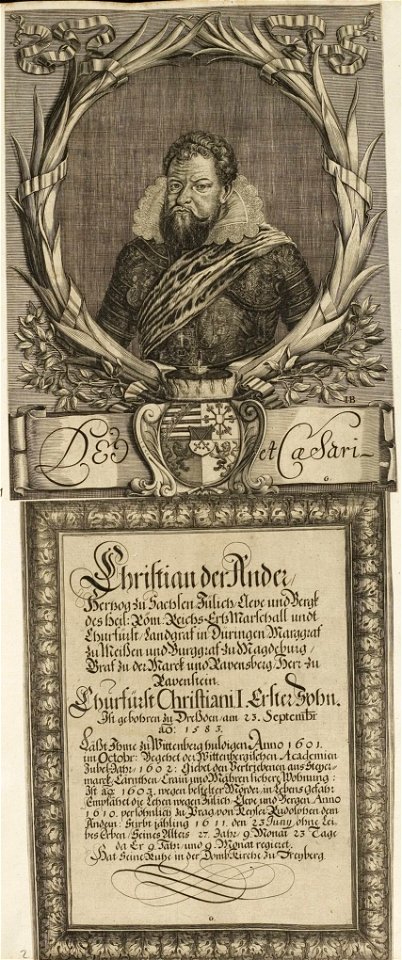 IB
DEO et Cæsari
6.
Christian der Ander,
Hertzog zu Sachsen Jülich, Cleve und Bergk
des Heil: Röm: Reichs Ertz Marschall undt
Churfürst, Landgraf in Düringen Marggraf
zu Meißen und Burggraf zu Magdeburg,
Graf zu der Marck und Ravensberg, Herr zu
Ravenstein.
Churfürst Christiani I. Erster Sohn.
Ist gebohren zu Dreßden, am 23. Septembr
ao: 1583.
Läßt Ihme zu Wittenberg huldigen Anno 1601.
im Octobr: Begehet der Wittenbergischen Academien
Jubel-Jahr, 1602: Giebet den Vertriebenen aus Steyer-
marck, Cärnthen, Crain und Mähren sichere Wohnung:
Ist ao: 1603. wegen bestelter Mörder, in Lebens Gefahr:
Empfähet die Lehen wegen Jülich, Cleve und Bergen Anno
1610. persöhnlich zu Prag, von Keyser Rudolphen dem
Andern: Stirbt jähling 1611. den 23 Juny, ohne Lei-
bes Erben, Seines Alters 27. Jahr, 9. Monat 23 Tage
da Er 9. Jahr, und 9. Monat regieret.
Hat Seine Ruhe in der Domb Kirche zu Freyberg.
6.
2.